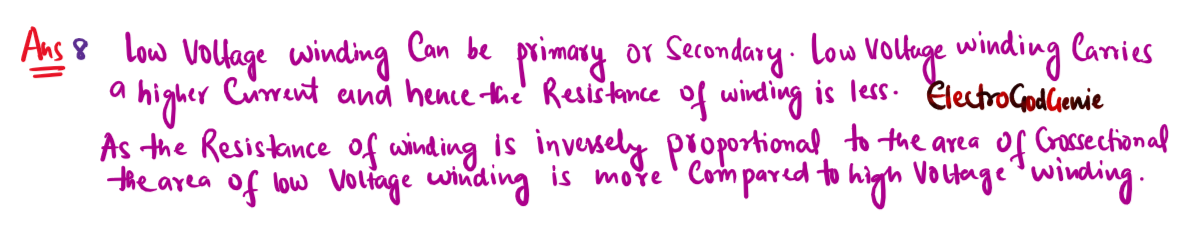 Ans 8 Low Voltage winding Can be primary or Secondary. Low Voltage winding Carries
a higher Current and hence the Resistance of winding is less. ElectroGodGenie
As the Resistance of winding is inversely proportional to the area of Crossectional
the area of low Voltage winding is more Compared to high Voltage winding.